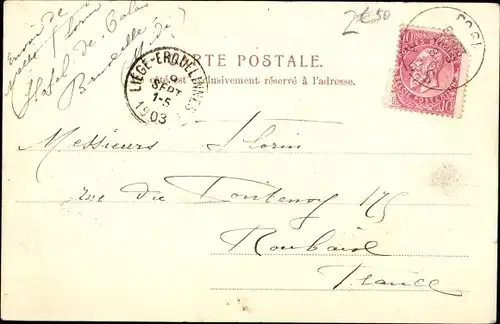 Envoi de
Melle Florin
Hotel de Calais
Bruxelles
Midi
2€50
CARTE POSTALE.
Côté exclusivement réservé à l'adresse.
LIÈGE-ERQUELINNES
9
SEPT
1-5
1903
10 10
Messieurs Florin
rue du Fontenoy 175
Roubaix
France